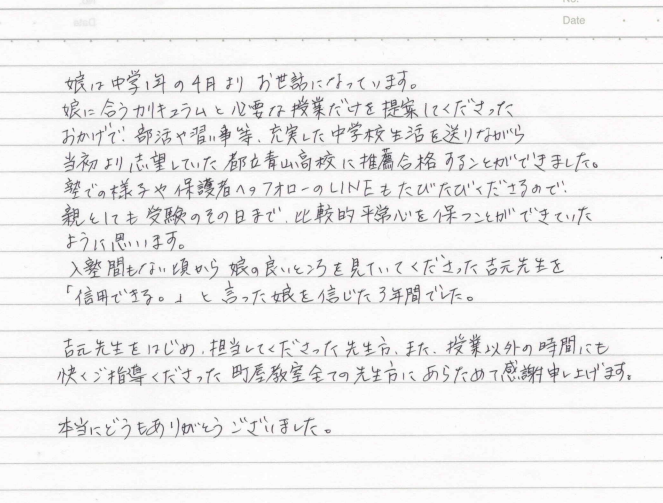 No.
Date
娘は中学1年の4月より お世話になっています。
娘に合うカリキュラムと必要な授業だけを提案してくださった
おかげで、部活や習い事等、充実した中学校生活を送りながら
当初より志望していた都立青山高校に推薦合格することができました。
塾での様子や保護者へのフォローのLINEもたびたびくださるので、
親としても受験のその日まで、比較的平常心を保つことができていた
ように思います。
入塾間もない頃から娘の良いところを見ていてくださった吉元先生を
「信用できる。」と言った娘を信じた3年間でした。
吉元先生をはじめ、担当してくださった先生方、また、授業以外の時間にも
快くご指導くださった町屋教室全ての先生方にあらためて感謝申し上げます。
本当にどうもありがとうございました。